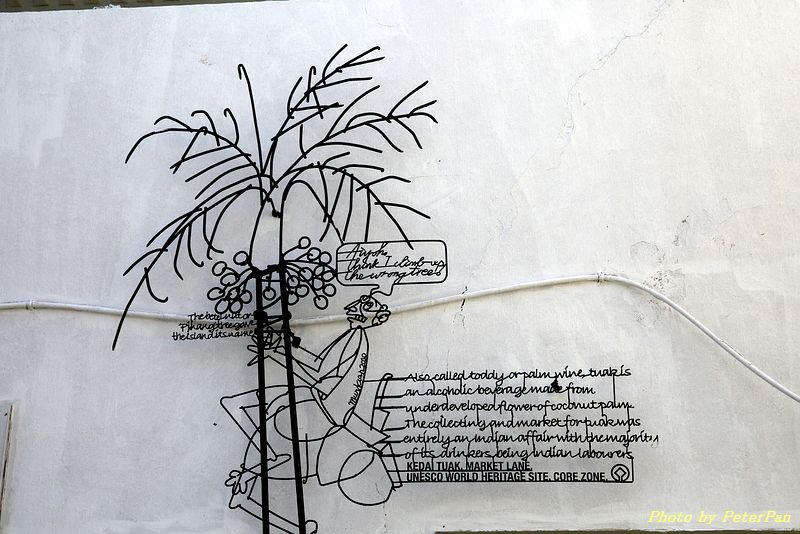 Aiyoh,
think I climb-up
the wrong trees
The betel nut or
Pinang tree gave
the island its name
Also called toddy or palm wine, tuak is
an alcoholic beverage made from
underdeveloped flower of coconut palm.
The collecting and market for tuak was
entirely an Indian affair with the majority
of its drinkers being Indian labourers
KEDAI TUAK, MARKET LANE,
UNESCO WORLD HERITAGE SITE, CORE ZONE.
Photo by PeterPan